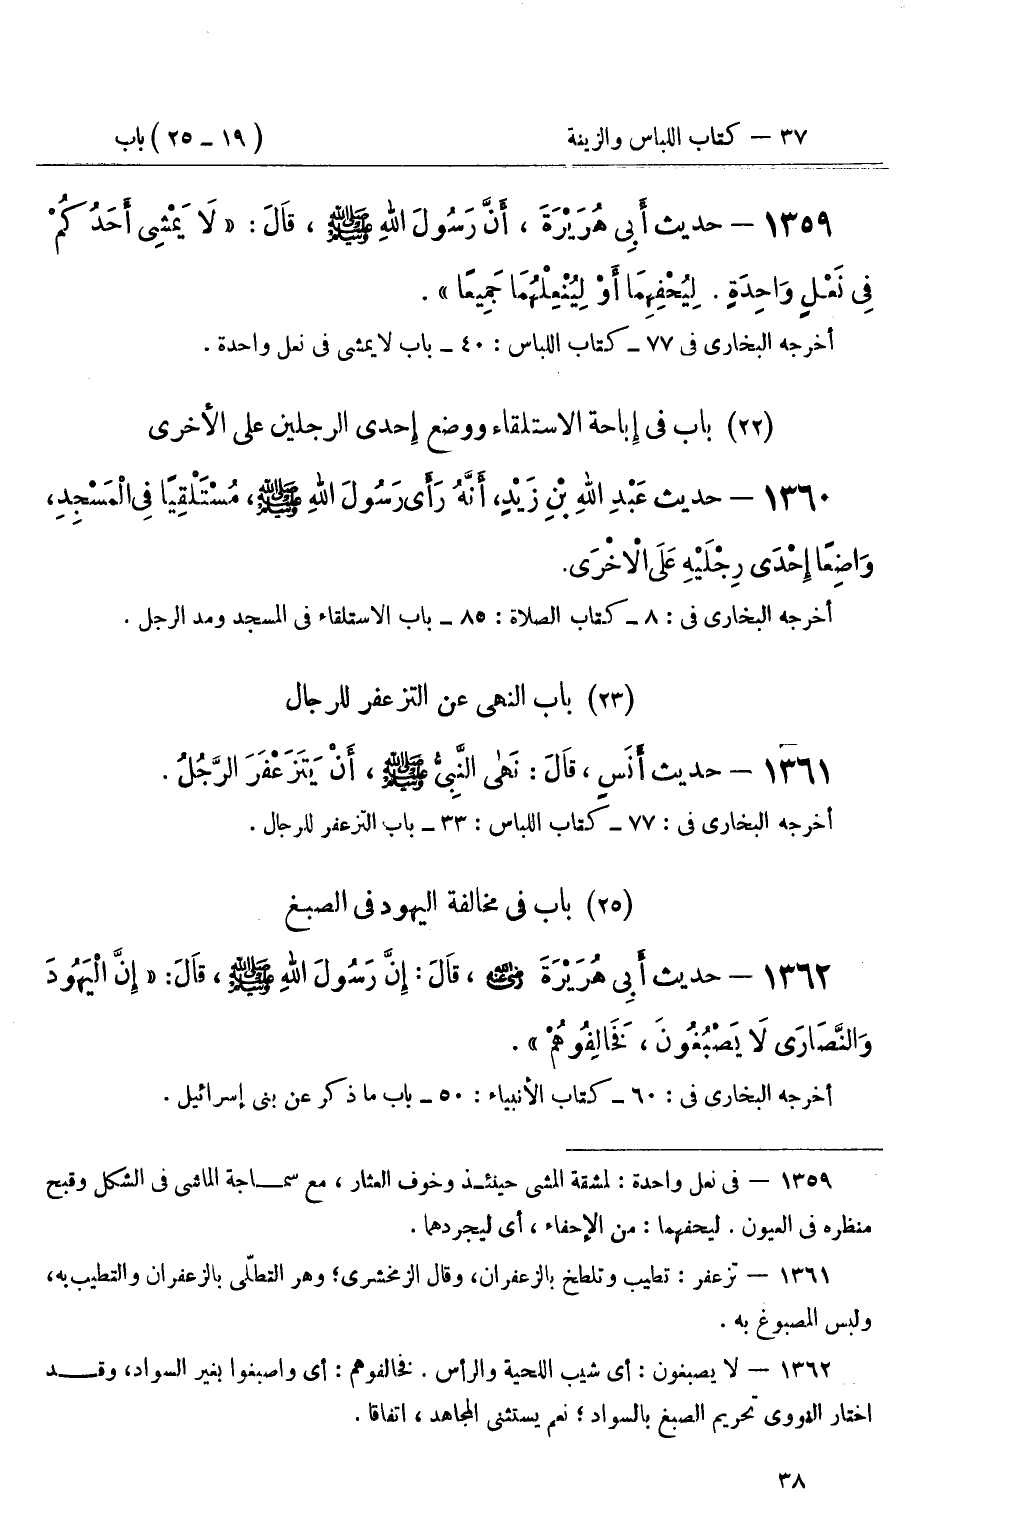 ٣٧ — كتاب اللباس والزينة (١٩ – ٢٥) باب
١٣٥٩ — حديث أَبِى هُرَيْرَةَ ، أَنَّ رَسُولَ اللهِ ﷺ ، قَالَ : « لَا يَمْشِى أَحَدُكُمْ
فِى نَعْلٍ وَاحِدَةٍ . لِيُحْفِهِمَا أَوْ لِيُنْعِلْهُمَا جَمِيعًا » .
أخرجه البخارى فى ٧٧ – كتاب اللباس : ٤٠ – باب لا يمشى فى نعل واحدة .
(٢٢) باب فى إباحة الاستلقاء ووضع إحدى الرجلين على الأخرى
١٣٦٠ — حديث عَبْدِ اللهِ بْنِ زَيْدٍ، أَنَّهُ رَأَى رَسُولَ اللهِ ﷺ، مُسْتَلْقِيًا فِى الْمَسْجِدِ،
وَاضِعًا إِحْدَى رِجْلَيْهِ عَلَى الْاخْرَى.
أخرجه البخارى فى : ٨ – كتاب الصلاة : ٨٥ – باب الاستلقاء فى المسجد ومد الرجل .
(٢٣) باب النهى عن التزعفر للرجال
١٣٦١ — حديث أَنَسٍ ، قَالَ : نَهٰى النَّبِىُّ ﷺ ، أَنْ يَتَزَعْفَرَ الرَّجُلُ .
أخرجه البخارى فى : ٧٧ – كتاب اللباس : ٣٣ – باب التزعفر للرجال .
(٢٥) باب فى مخالفة اليهود فى الصبغ
١٣٦٢ — حديث أَبِى هُرَيْرَةَ رضي الله عنه ، قَالَ : إِنَّ رَسُولَ اللهِ ﷺ ، قَالَ: « إِنَّ الْيَهُودَ
وَالنَّصَارَى لَا يَصْبُغُونَ ، فَخَالِفُوهُمْ » .
أخرجه البخارى فى : ٦٠ – كتاب الأنبياء : ٥٠ – باب ما ذكر عن بنى إسرائيل .
١٣٥٩ — فى نعل واحدة : لمشقة المشى حينئذ وخوف العثار ، مع سماجة الماشى فى الشكل وقبح
منظره فى العيون . ليحفهما : من الإحفاء ، أى ليجردهما .
١٣٦١ — تزعفر : تطيب وتلطخ بالزعفران، وقال الزمخشرى؛ وهر التطلّى بالزعفران والتطيب به،
ولبس المصبوغ به .
١٣٦٢ — لا يصبغون : أى شيب اللحية والرأس . فخالفوهم : أى واصبغوا بغير السواد، وقد
اختار النووى تحريم الصبغ بالسواد ؛ نعم يستثنى المجاهد ، اتفاقا .
٣٨